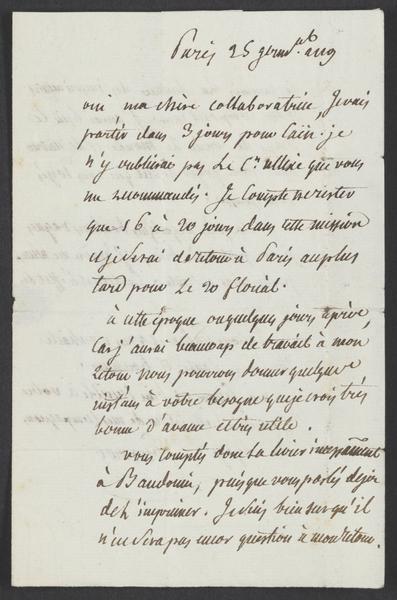 Paris 25 germ.al an 9
oui ma chère collaboratrice, Je vais
partir dans 3 jours pour Caën. je
n'y oublirai pas Le C.en que vous
me recommandés. Je compte ne rester
que 16 à 20 jours dans cette mission
et je serai de retour à Paris au plus
tard pour Le 20 floréal.
à cette époque ou quelques jours après,
Car j'aurai beaucoup de travail à mon
retour nous pourrons donner quelque
instans à votre besogne que je crois très
bonne d'avance et très utile.
vous comptés donc La livrer incessament
à Baudouin, puisque vous parlés déjà
de L'imprimer. Je suis bien sur qu'il
n'en sera pas encor question à mon retour.